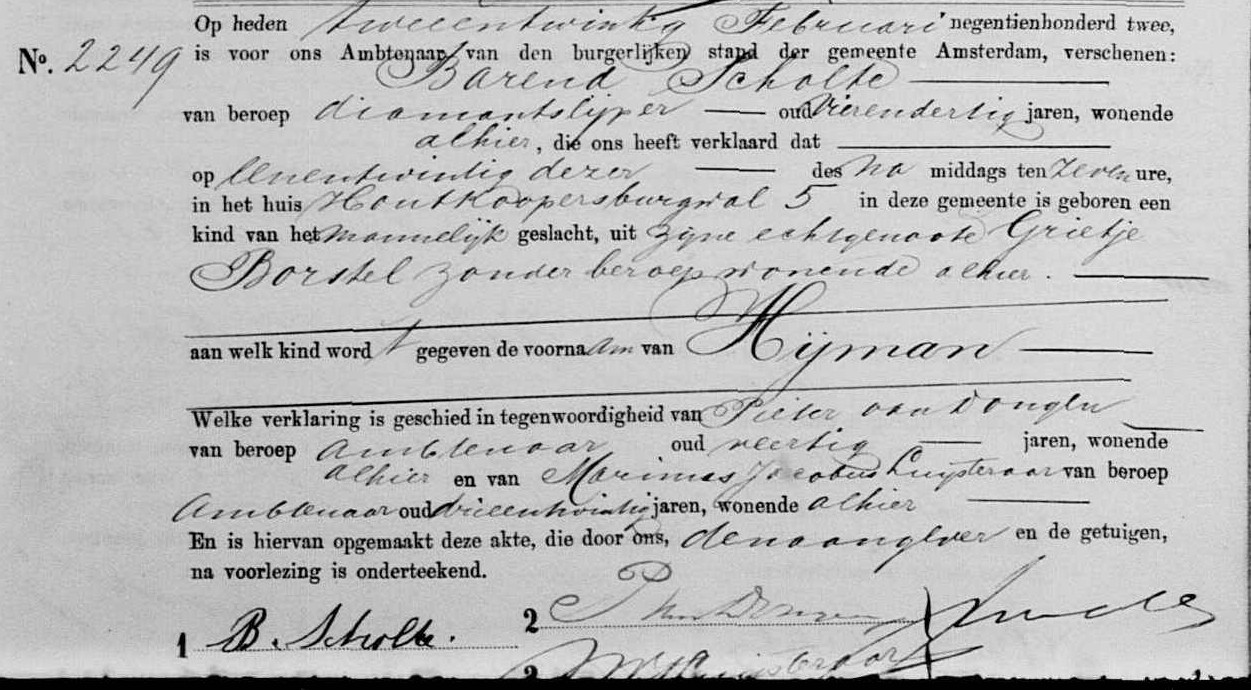 Op heden tweeentwintig Februari negentienhonderd twee,
No. 2249 is voor ons Ambtenaar van den burgerlijken stand der gemeente Amsterdam, verschenen:
Barend Scholte
van beroep diamantslijper oud vierendertig jaren, wonende
alhier, die ons heeft verklaard dat
op eenentwintig dezer des na middags ten zeven ure,
in het huis Houtkoopersburgwal 5 in deze gemeente is geboren een
kind van het mannelijk geslacht, uit zijne echtgenoote Grietje
Borstel zonder beroep wonende alhier.
aan welk kind wordt gegeven de voornaam van Hijman
Welke verklaring is geschied in tegenwoordigheid van Pieter van Dongen
van beroep Ambtenaar oud veertig jaren, wonende
alhier en van Marinus Jacobus Luijsteraar van beroep
Ambtenaar oud drieentwintig jaren, wonende alhier
En is hiervan opgemaakt deze akte, die door ons, den aangever en de getuigen,
na voorlezing is onderteekend.
1 B. Scholte. 2 P van Dongen
3 Luijsteraar